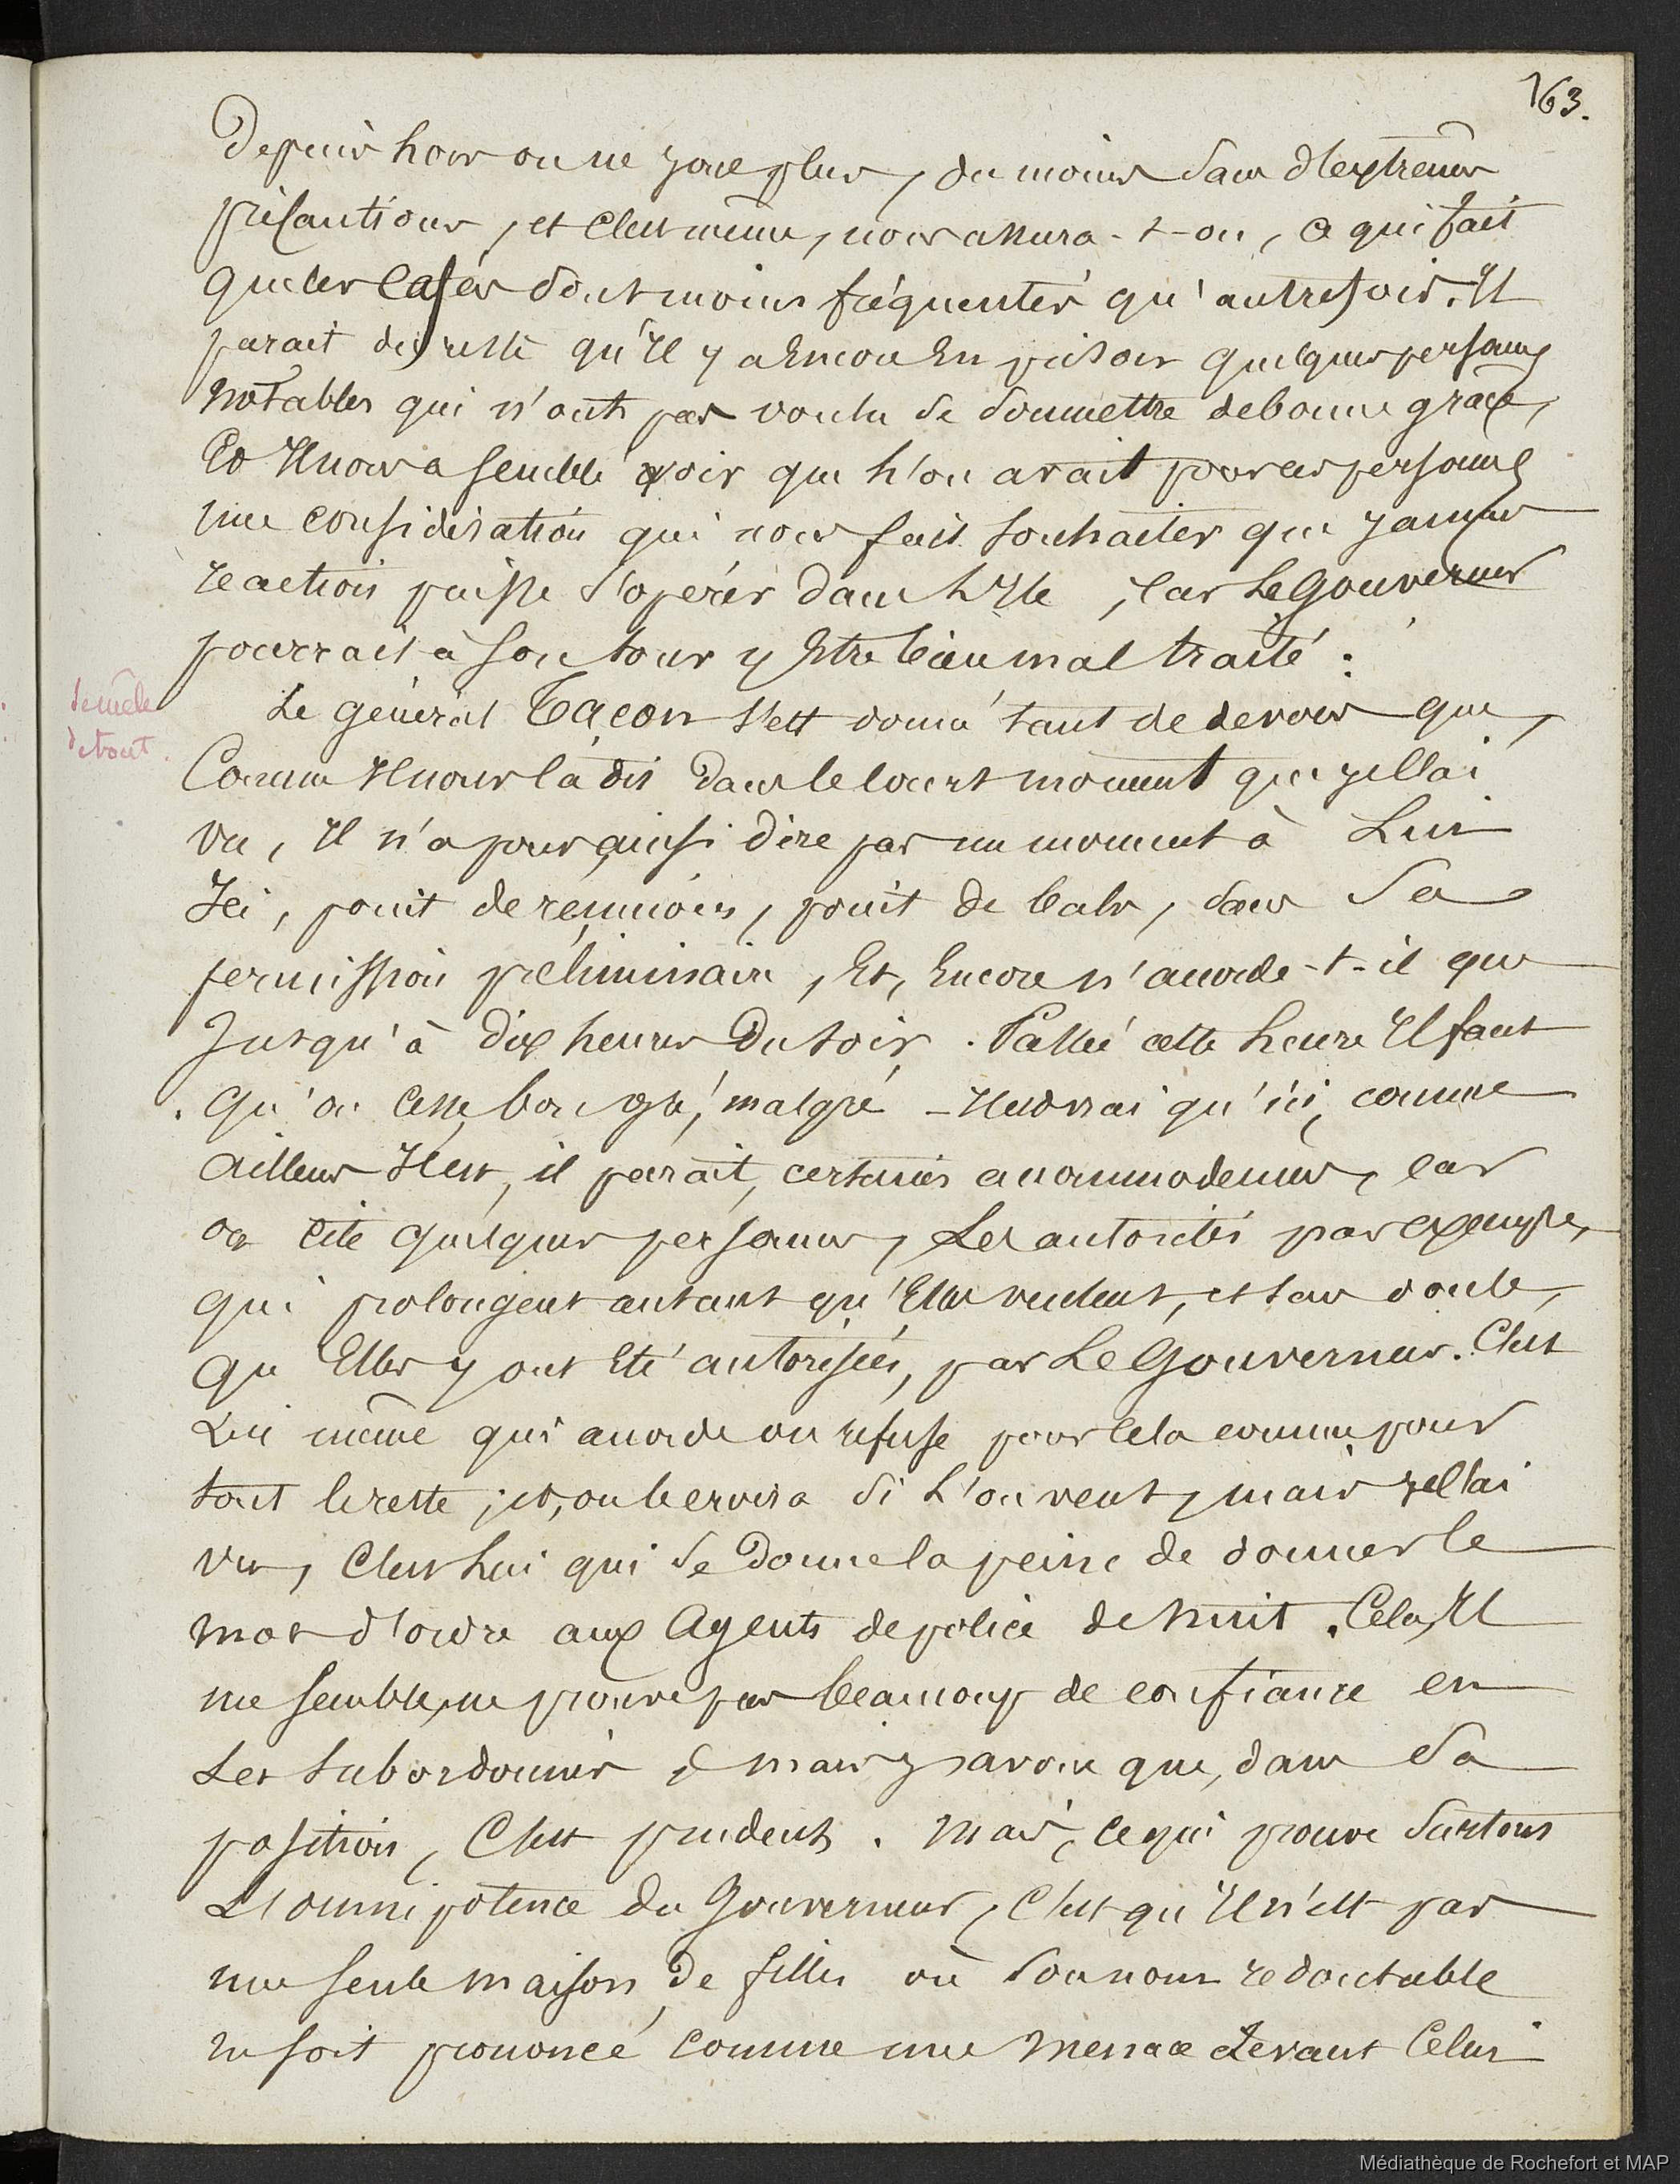 163.
Depuis lors on ne joue plus, du moins sans d'extrêmes
précautions, et c'est même, nous assura-t-on, ce qui fait
que les Cafés sont moins fréquentés qu'autrefois. Il
parait du reste qu'Il y a Encore En prison quelques personnes
notables qui n'ont pas voulu se soumettre de bonne grâce,
Et Il nous a semblé voir que l'on avait pour ces personnes
une considération qui nous fait souhaiter que jamais
réaction puisse s'opérer dans l'Ile, car Le Gouverneur
pourrait à son tour y Etre bien mal traité.
se mêle
de tout.
Le général Tacon s'est donné tant de devoirs que,
Comme Il nous l'a dit Dans le court moment que je l'ai
vu, Il n'a pour ainsi dire pas un moment à Lui
Ici, point de réunions, point de bals, sans Sa
permission préliminaire, Et, Encore n'accorde-t-il que
Jusqu'à dix heures Du soir. Passé cette heure Il faut
qu'on cesse bon gré, malgré - Il est vrai qu'ici, comme
ailleurs Il est, il parait, certains accommodements, car
on cite quelques personnes, Les autorités par exemple,
qui prolongent autant qu'Elles veulent, et sans doute,
qu'Elles y ont Eté autorisées, par Le Gouverneur. C'est
Lui même qui accorde ou refuse pour cela comme pour
tout le reste; et, on le croira si L'on veut, mais je l'ai
vu, C'est Lui qui se donne la peine de donner le
mot d'ordre aux Agents de police de nuit. Cela, Il
me semble, ne prouve pas beaucoup de confiance en
Ses subordonnés, mais j'avoue que, dans Sa
position, C'est prudent. Mais, ce qui prouve surtout
L'omnipotence du Gouverneur, C'est qu'Il n'est pas
une seule maison de filles où son nom redoutable
ne soit prononcé comme une menace devant Celui
Médiathèque de Rochefort et MAP